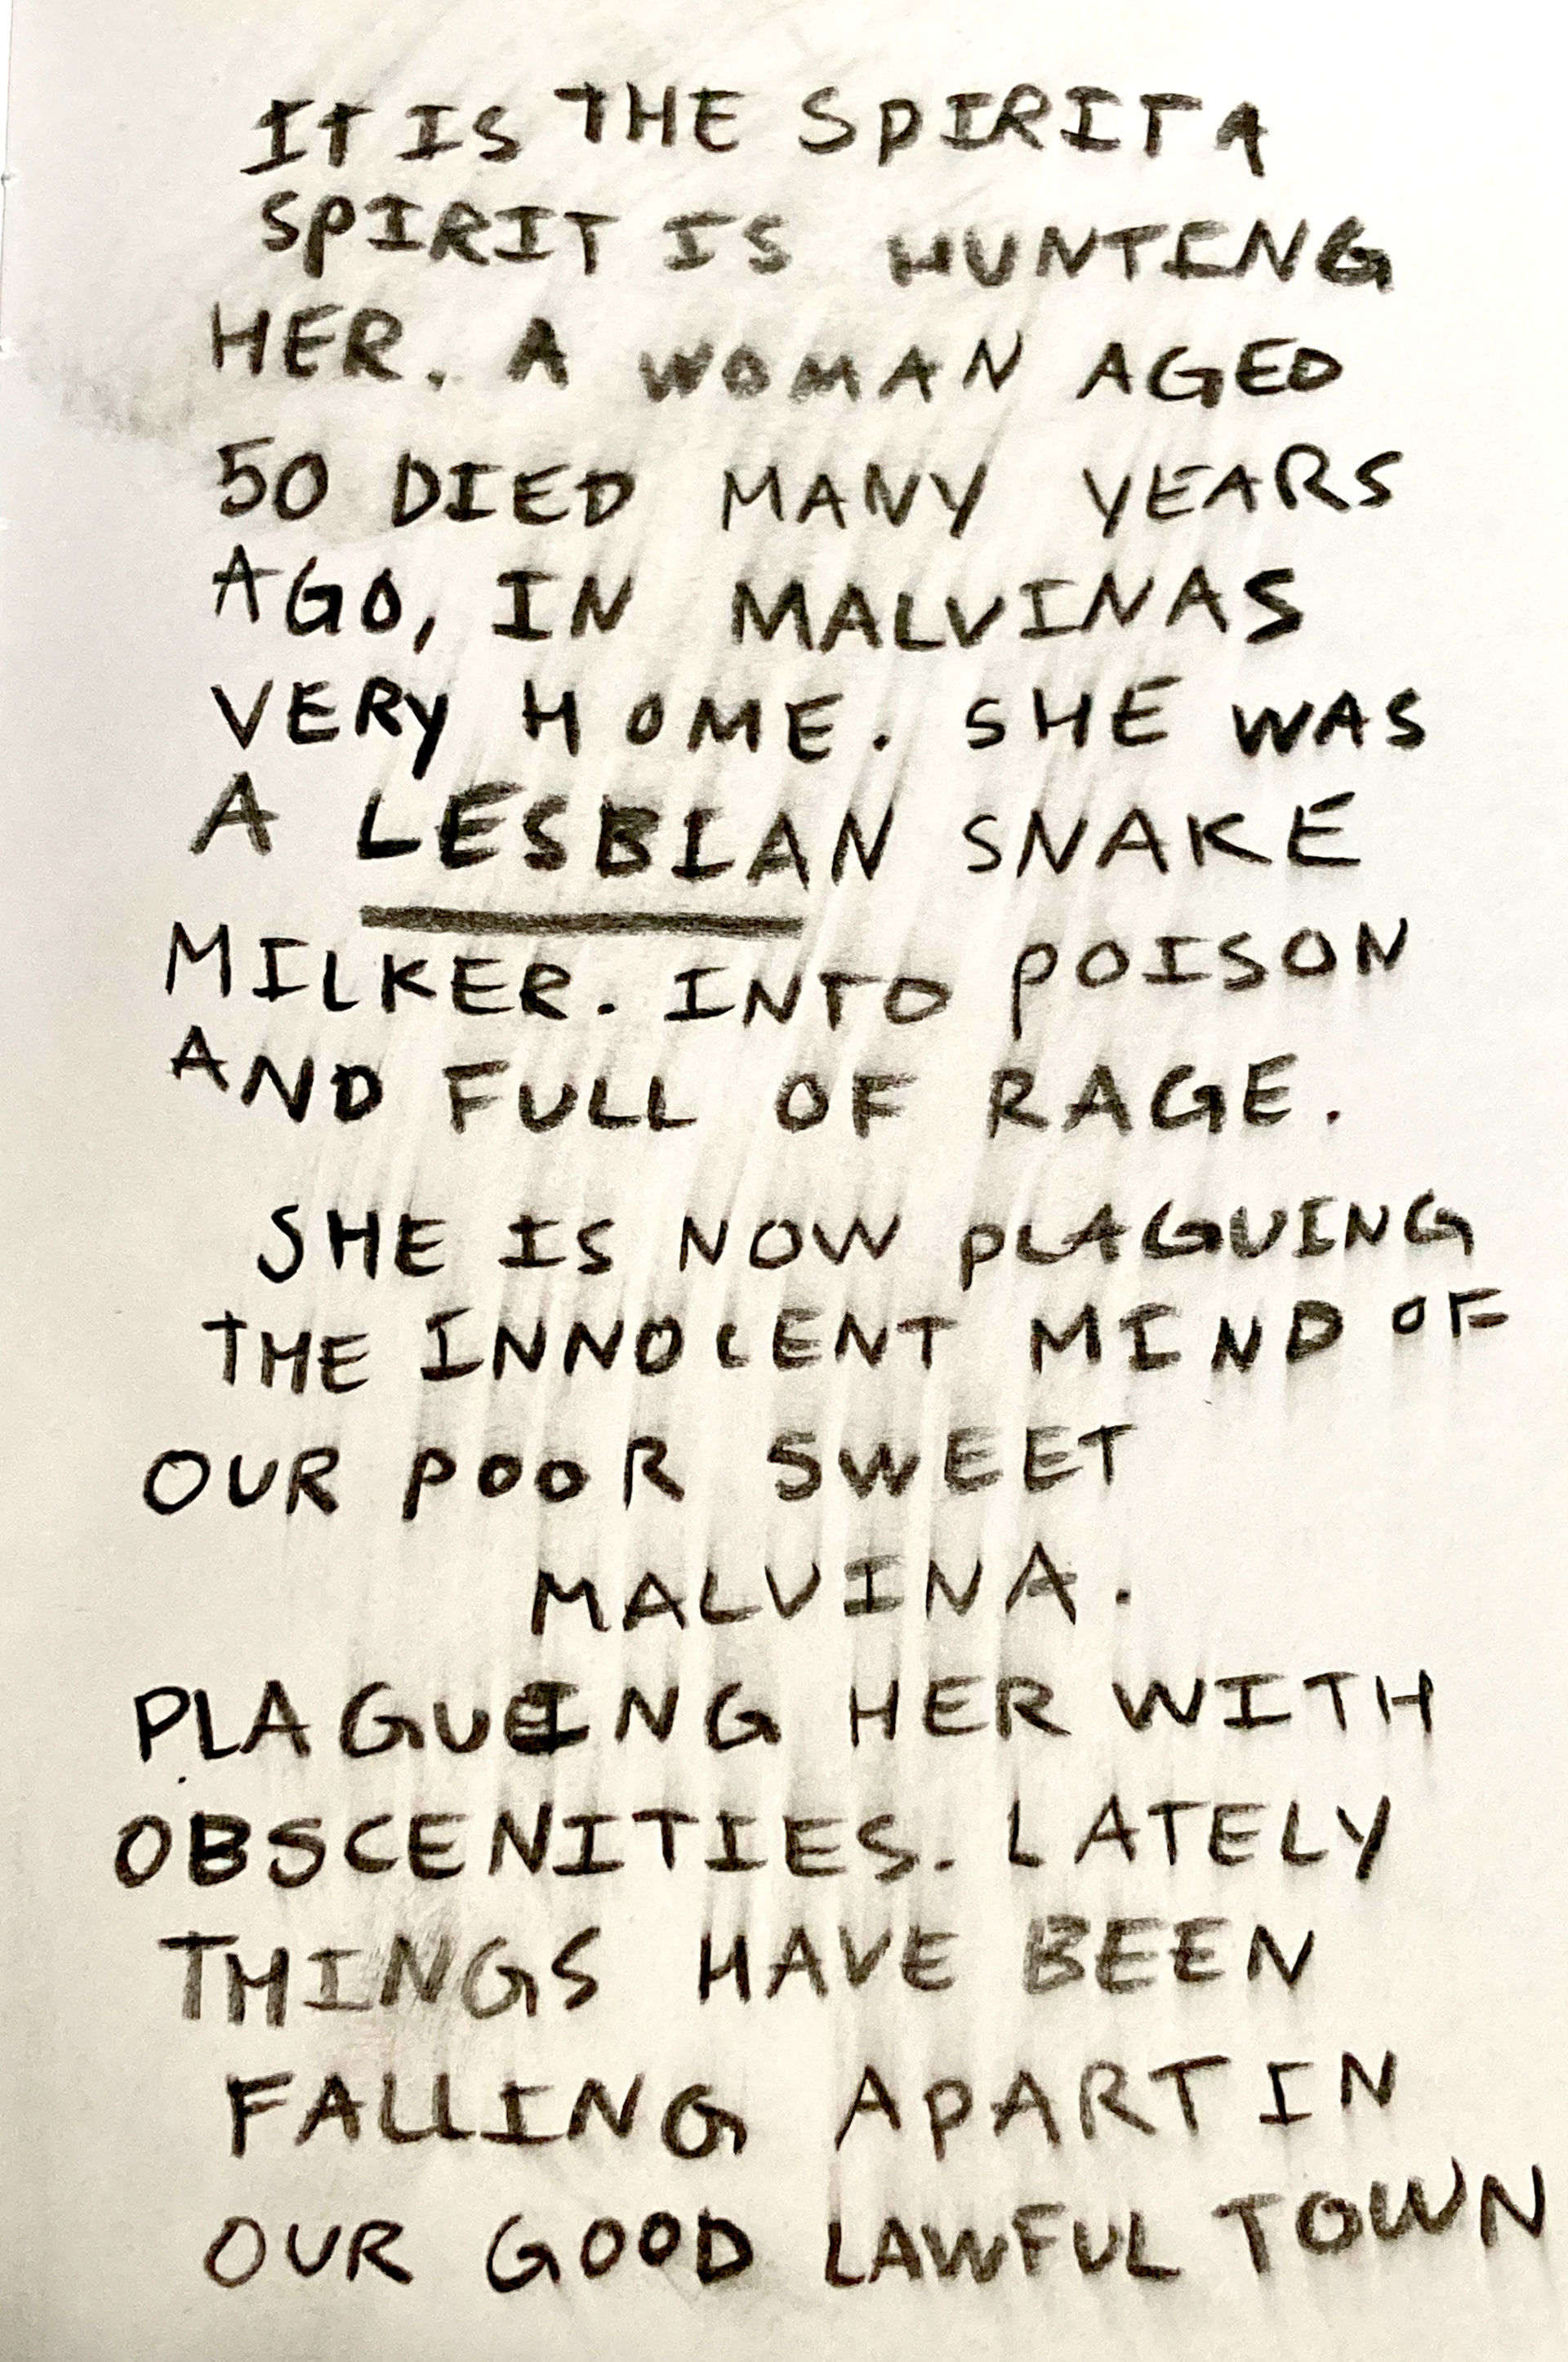 IT IS THE SPIRIT A
SPIRIT IS HUNTING
HER. A WOMAN AGED
50 DIED MANY YEARS
AGO, IN MALVINAS
VERY HOME. SHE WAS
A LESBIAN SNAKE
MILKER. INTO POISON
AND FULL OF RAGE.
SHE IS NOW PLAGUING
THE INNOCENT MIND OF
OUR POOR SWEET
MALVINA.
PLAGUING HER WITH
OBSCENITIES. LATELY
THINGS HAVE BEEN
FALLING APART IN
OUR GOOD LAWFUL TOWN